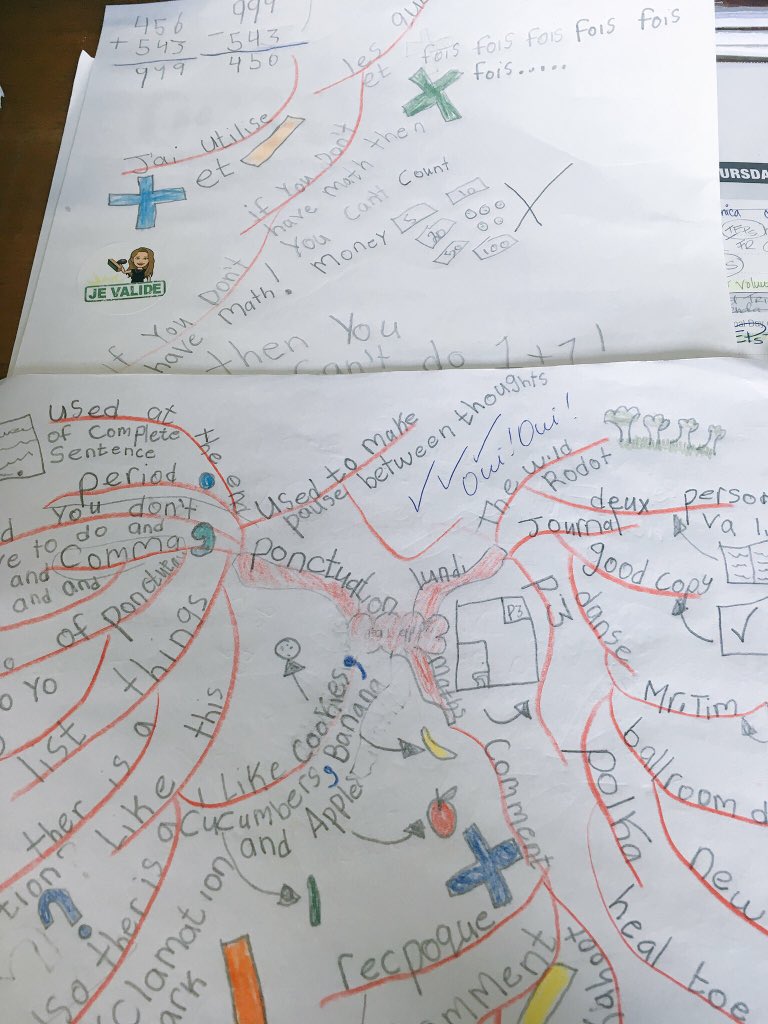 456
+ 543
999
999
- 543
450
les
et
que
fois fois fois fois fois
fois.....
J'ai utilise
et
if You Don't
have math then
You can't count
money
5
10
20
50
100
if You Don't
have math!
then You
can't do 1+7!
JE VALIDE
URSDA
used at
of Complete
Sentence
the end
period
You don't
to do and
and
Comma
and and
of
things
list
o Yo
ther is a
tion?
?
Like this
ther is a
Clamation
ark
Used to make
pause between thoughts
Oui! Oui!
ponctuation
lundi
maths
I Like Cookies,
Cucumbers, Banana
and Apple
The wild
Rodot
deux person
va
Journal
good copy
P3
P3
danse
Mr. Tim
ballroom d
polka
New
heal toe
Comment
recpoque
mment